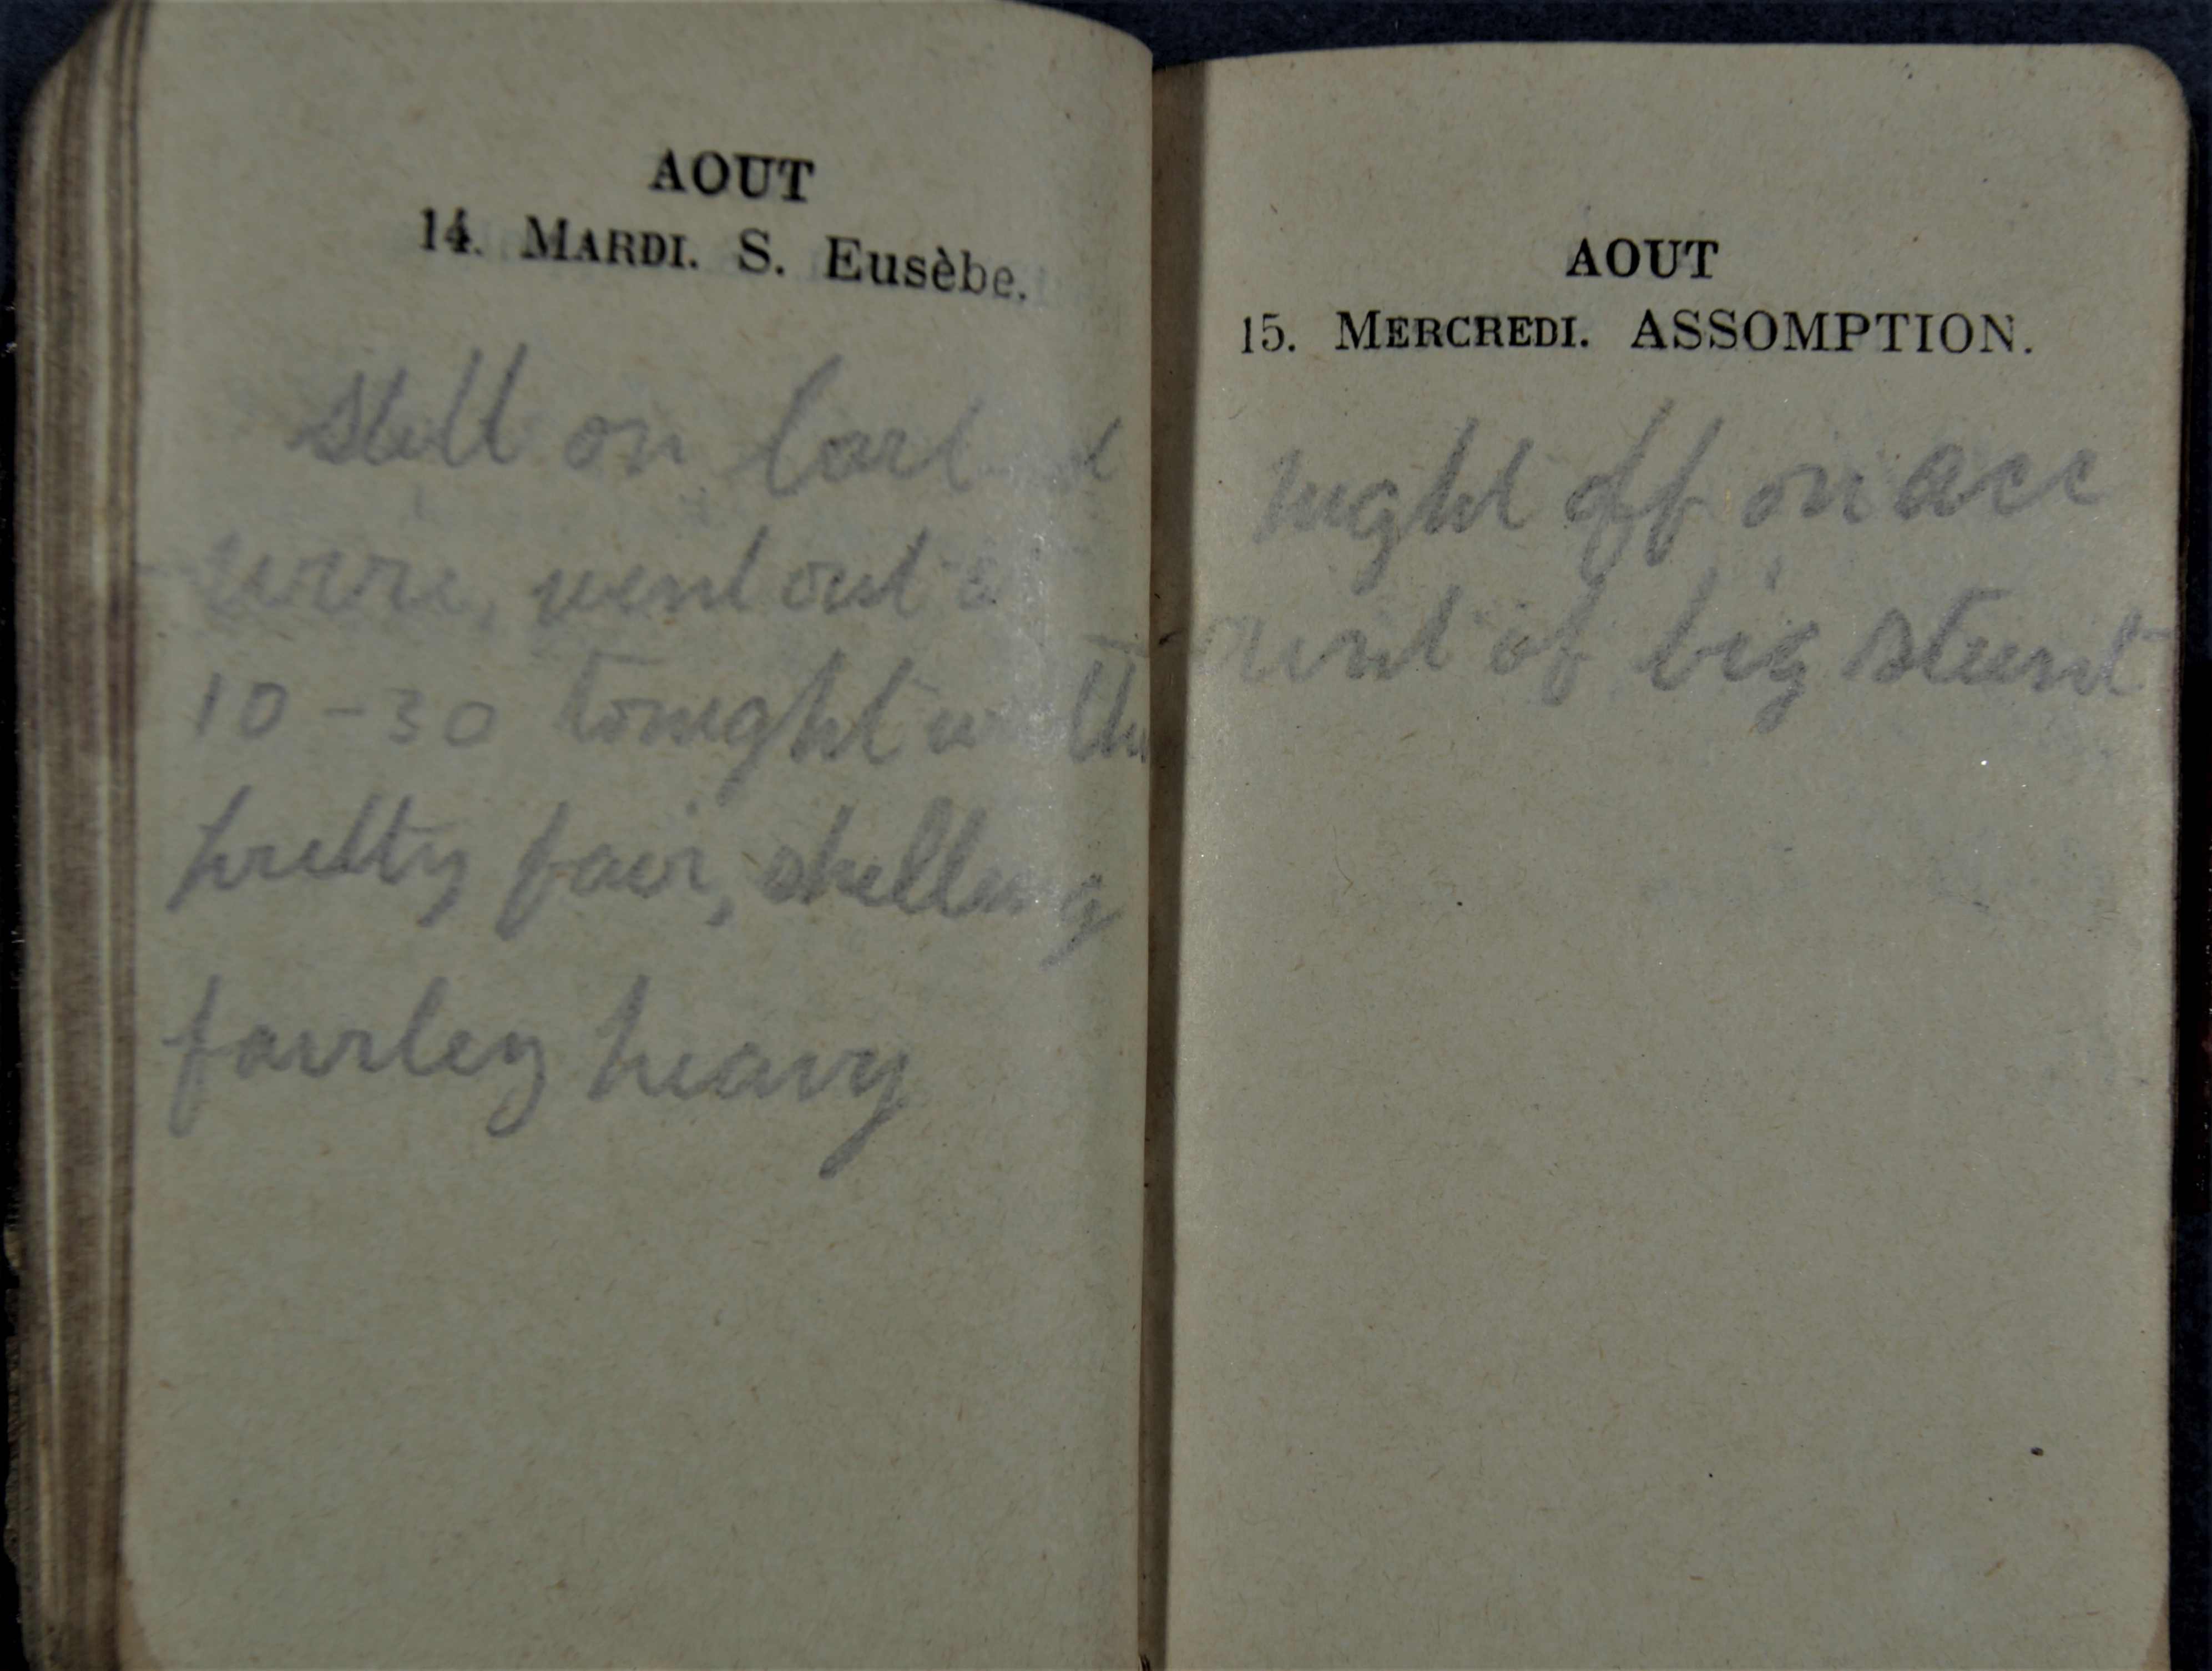 AOUT
14. MARDI. S. Eusèbe.
Still on
wire, went out
10-30 tonight
pretty fair, shelling
fairley heavy
AOUT
15. MERCREDI. ASSOMPTION.
night off on acc
ount of big stunt